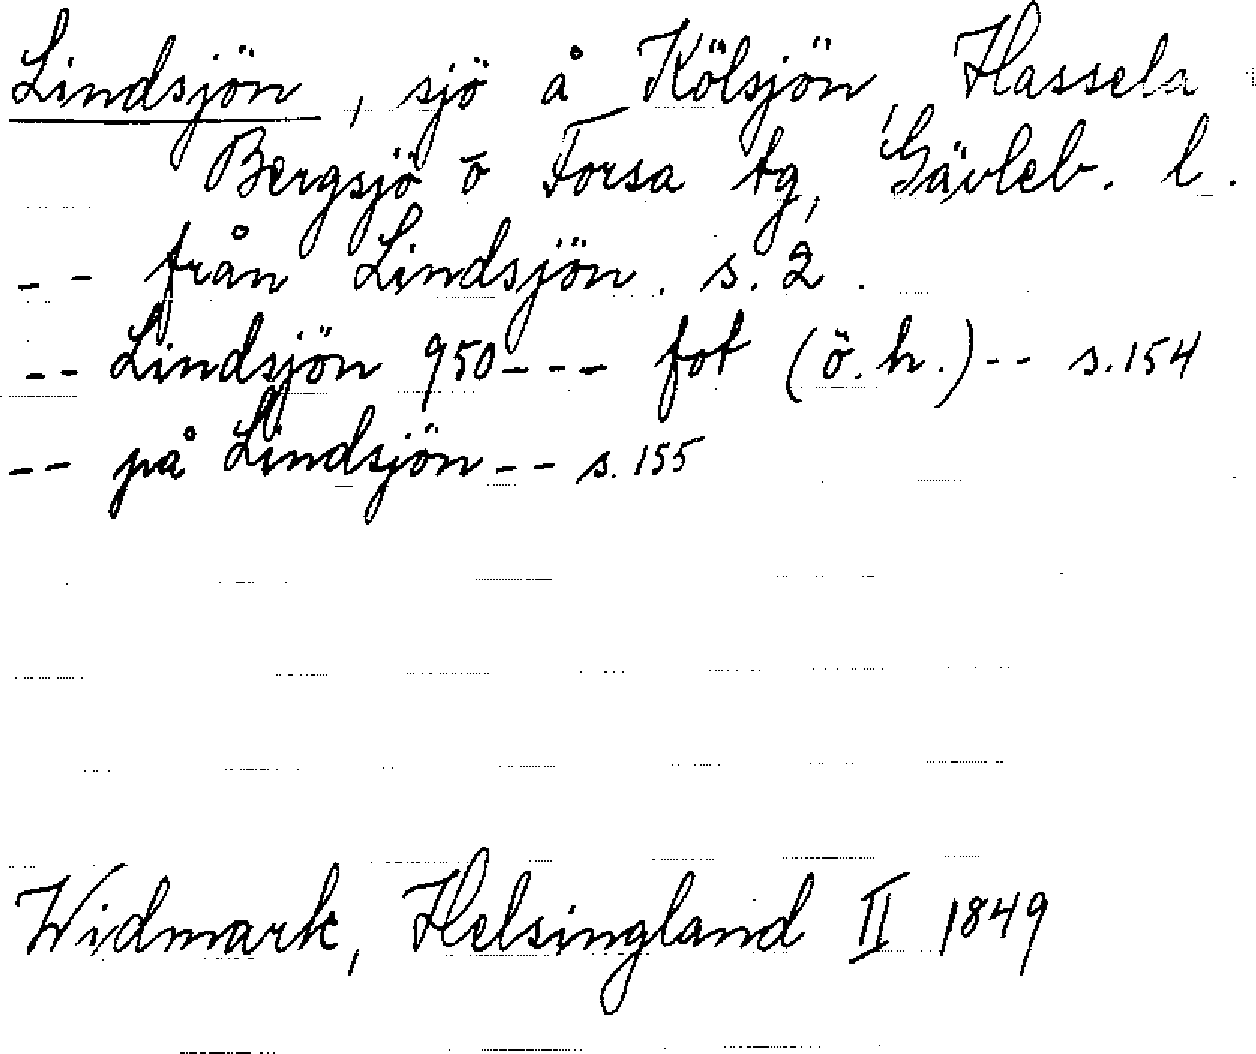 Lindsjön, sjö å Kölsjön, Hassela
Bergsjö o Forsa tg, Gävleb. l.
-- från Lindsjön. s. 2.
-- Lindsjön 950--- fot (ö. h.)-- s. 154
-- på Lindsjön-- s. 155
Widmark, Helsingland II 1849